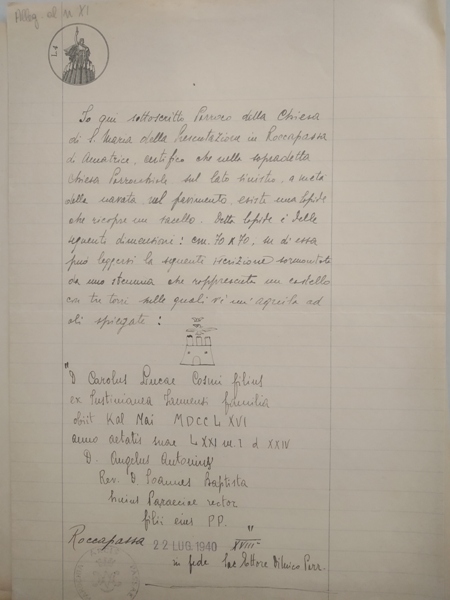 Alleg. al n XI
L4
Io qui sottoscritto Parroco della Chiesa
di S. Maria della Presentazione in Roccapassa
di Amatrice, certifico che nella sopradetta
Chiesa Parrocchiale sul lato sinistro, a metà
della navata, sul pavimento, esiste una lapide
che ricopre un sacello. Detta lapide è delle
seguenti dimensioni: cm. 70 x 70, su di essa
può leggersi la seguente iscrizione sormontata
da uno stemma che rappresenta un castello
con tre torri sulle quali vi è un'aquila ad
ali spiegate:
"D. Carolus Lucae Cosmi filius
ex Justinianea Januensi familia
obiit Kal Mai MDCCLXVI
anno aetatis suae LXXI m. I d. XXIV
D. Angelus Antonius
Rev. D. Joannes Baptista
huius Paraeciae rector
filii eius P.P."
Roccapassa 22 LUG. 1940 XVIII
in fede Sac. Ettore Parr.